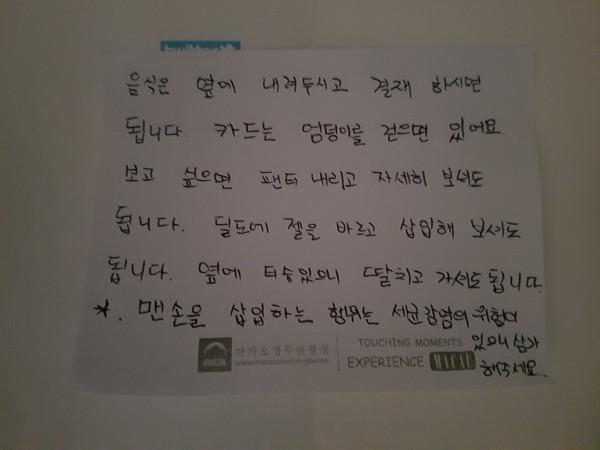 twitter
음식은 옆에 내려두시고 결재 하시면
됩니다. 카드는 엄덩이를 걷으면 있어요
보고 싶으면 팬티 내리고 자세히 보셔도
됩니다. 딜도에 젤을 바르고 삽입해 보셔도
됩니다. 옆에 티슈있으니 딸치고 가셔도 됩니다.
*. 맨손을 삽입하는 행위는 세균감염의 위험이
있으니 삼가
해주세요.
마카오정부관광청
www.macaotourism.gov.mo
TOUCHING MOMENTS
EXPERIENCE MACAO